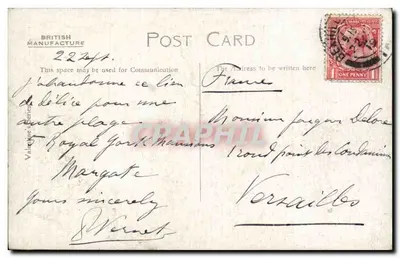 BRITISH
MANUFACTURE
POST CARD
This space may be used for Communication
The address to be written here
22 Sept.
J'abandonne ce lieu
de délice pour une
autre plage
Royal York Mansions
Margate
Yours sincerely
Vernet
France
Monsieur Jacques Delore
rond point les Condamines
Versailles
ONE PENNY